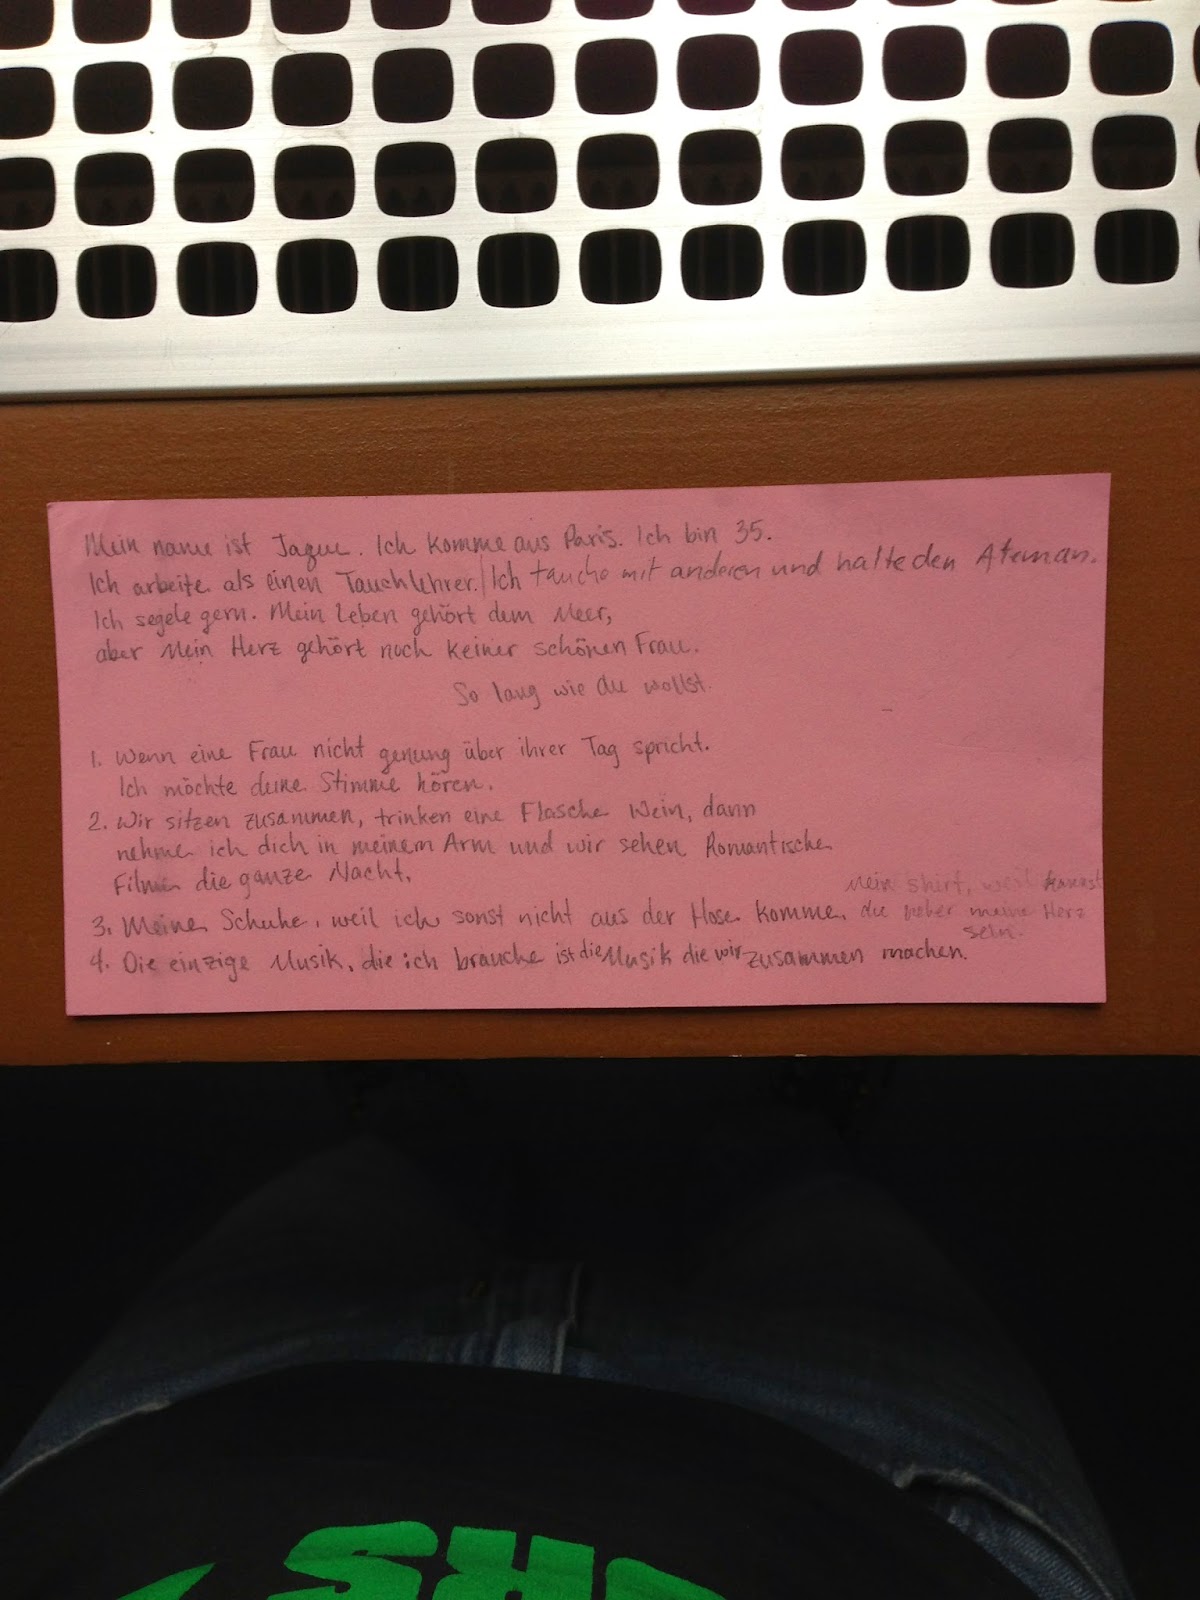 Mein name ist Jaque. Ich komme aus Paris. Ich bin 35.
Ich arbeite als einen Tauchlehrer. Ich tauche mit anderen und halte den Atem an.
Ich segele gern. Mein Leben gehört dem Meer,
aber Mein Herz gehört noch keiner schönen Frau.
So lang wie du wollst.
1. Wenn eine Frau nicht genung über ihrer Tag spricht.
Ich möchte deine Stimme hören.
2. Wir sitzen zusammen, trinken eine Flasche Wein, dann
nehme ich dich in meinem Arm und wir sehen Romantische
Filme die ganze Nacht.
Mein shirt, weil kannst
3. Meine Schuhe, weil ich sonst nicht aus der Hose komme. du neher meine Herz
sein.
4. Die einzige Musik, die ich brauche ist die Musik die wir zusammen machen.